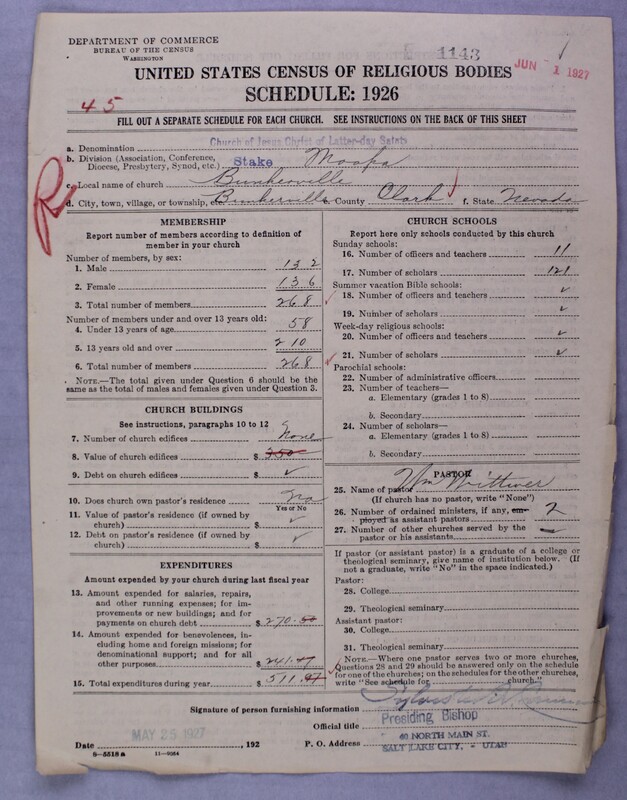 DEPARTMENT OF COMMERCE
BUREAU OF THE CENSUS
WASHINGTON
1143
JUN 1 1927
UNITED STATES CENSUS OF RELIGIOUS BODIES
SCHEDULE: 1926
45
FILL OUT A SEPARATE SCHEDULE FOR EACH CHURCH. SEE INSTRUCTIONS ON THE BACK OF THIS SHEET
R
a. Denomination Church of Jesus Christ of Latter-day Saints
b. Division (Association, Conference, Diocese, Presbytery, Synod, etc.) Stake Moapa
c. Local name of church Bunkerville
d. City, town, village, or township, Bunkerville County Clark f. State Nevada
MEMBERSHIP
Report number of members according to definition of
member in your church
Number of members, by sex:
1. Male 132
2. Female 136
3. Total number of members 268
Number of members under and over 13 years old:
4. Under 13 years of age 58
5. 13 years old and over 210
6. Total number of members 268
NOTE.—The total given under Question 6 should be
same as the total of males and females given under Question 3.
CHURCH BUILDINGS
See instructions, paragraphs 10 to 12
7. Number of church edifices None
8. Value of church edifices $ 350
9. Debt on church edifices $ ✓
10. Does church own pastor's residence No
Yes or No
11. Value of pastor's residence (if owned by
church) $ ✓
12. Debt on pastor's residence (if owned by
church) $ ✓
EXPENDITURES
Amount expended by your church during last fiscal year
13. Amount expended for salaries, repairs,
and other running expenses; for im-
provements or new buildings; and for
payments on church debt $ 270.
14. Amount expended for benevolences, in-
cluding home and foreign missions; for
denominational support; and for all
other purposes $ 241.
15. Total expenditures during year $ 511.
CHURCH SCHOOLS
Report here only schools conducted by this church
Sunday schools:
16. Number of officers and teachers 11
17. Number of scholars 121
Summer vacation Bible schools:
18. Number of officers and teachers ✓
19. Number of scholars ✓
Week-day religious schools:
20. Number of officers and teachers ✓
21. Number of scholars ✓
Parochial schools:
22. Number of administrative officers
23. Number of teachers—
a. Elementary (grades 1 to 8)
b. Secondary
24. Number of scholars—
a. Elementary (grades 1 to 8)
b. Secondary
PASTOR
25. Name of pastor Wm Wittwer
(If church has no pastor, write "None")
26. Number of ordained ministers, if any, em-
ployed as assistant pastors 2
27. Number of other churches served by the
pastor or his assistants —
If pastor (or assistant pastor) is a graduate of a college or
theological seminary, give name of institution below. (If
not a graduate, write "No" in the space indicated.)
Pastor:
28. College
29. Theological seminary
Assistant pastor:
30. College
31. Theological seminary
NOTE.—Where one pastor serves two or more churches,
Questions 28 and 29 should be answered only on the schedule
for one of the churches; on the schedules for the other churches,
write "See schedule for church."
Signature of person furnishing information
Official title Presiding Bishop
Date MAY 25 1927 , 192 P. O. Address 40 NORTH MAIN ST.
SALT LAKE CITY, - UTAH
8—5518 a 11—9564